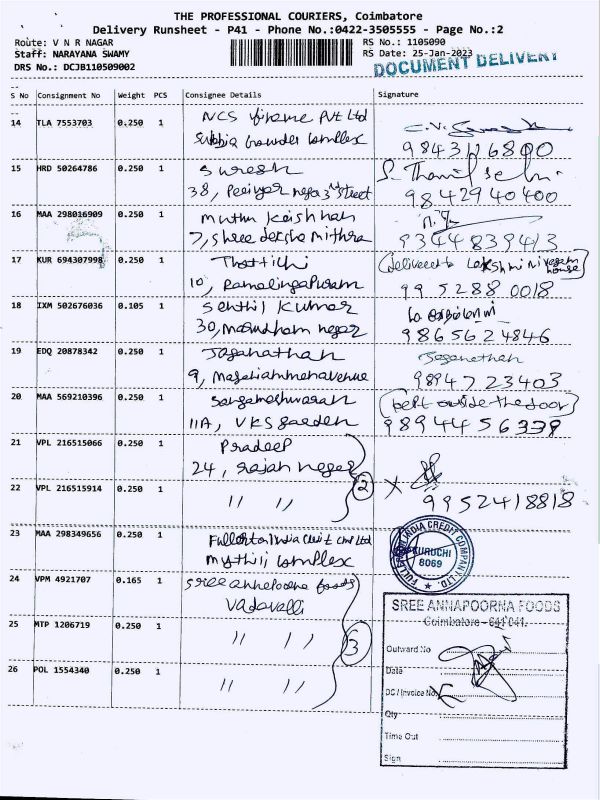 THE PROFESSIONAL COURIERS, Coimbatore
Delivery Runsheet - P41 - Phone No.:0422-3505555 - Page No.:2
Route: V N R NAGAR
RS No.: 1105090
Staff: NARAYANA SWAMY
RS Date: 25-Jan-2023
DRS No.: DCJB110509002
DOCUMENT DELIVERY
S No Consignment No Weight PCS Consignee Details Signature
14 TLA 7553703 0.250 1 NCS Pvt Ltd
complex
9843126800
15 HRD 50264786 0.250 1 Suresh
38, 3rd street
9842940400
16 MAA 298016909 0.250 1 Muthu Krishnan
7, Shree Mithra
9344839413
17 KUR 694307998 0.250 1 Thottichi
(delivered to Lakshmi Nivasam house)
10, Ramalingapuram
99 5288 0018
18 IXM 502676036 0.105 1 Senthil Kumar
30, Marudham nagar
9865624846
19 EDQ 20878342 0.250 1 Jaganathan
Jaganethan
9,
9894723403
20 MAA 569210396 0.250 1
(kept outside the door)
11A, VKS Garden
9894456338
21 VPL 216515066 0.250 1 Pradeep
24, Rajan nagar
22 VPL 216515914 0.250 1 〃 〃
2
X
9952418818
23 MAA 298349656 0.250 1 Fullerton India Ltd
complex
FULLERTON INDIA CREDIT COMPANY LTD.
KURUCHI
8069
24 VPM 4921707 0.165 1 Sree Annapoorna foods
Vadavalli
25 MTP 1206719 0.250 1 〃 〃
3
26 POL 1554340 0.250 1 〃 〃
SREE ANNAPOORNA FOODS
Coimbatore - 641 041.
Outward No
Date
DC / Invoice No
Qty
Time Out
Sign